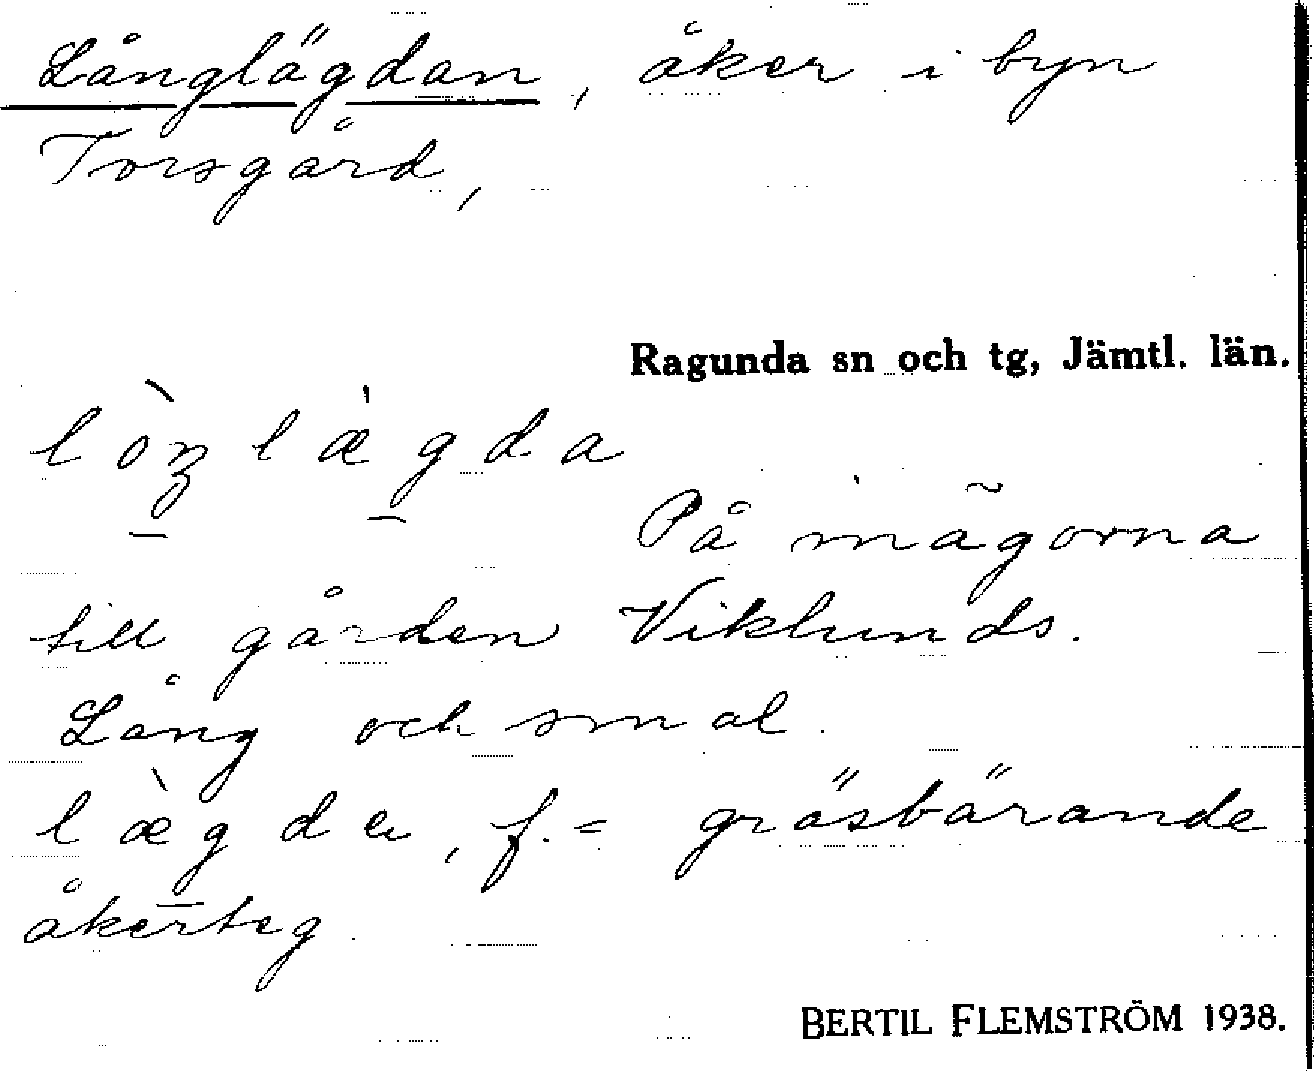 Långlägdan, åker i byn
Torsgård,
Ragunda sn och tg, Jämtl. län.
lòŋlæ̀gda
På inägorna
till gården Viklunds.
Lång och smal.
læ̀gda, f. = gräsbärande
åkerteg.
BERTIL FLEMSTRÖM 1938.